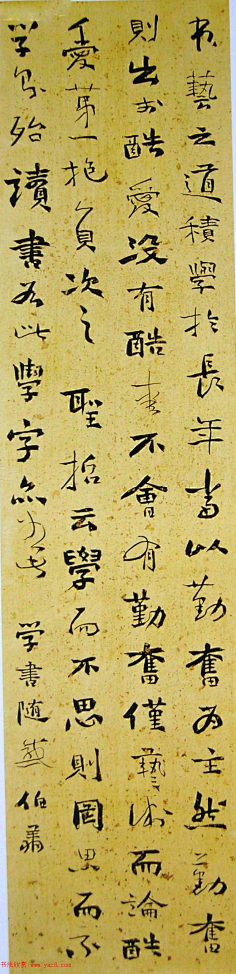 书藝之道積學於長年當以勤奮为主然勤奮
則出於酷愛没有酷愛不會有勤奮僅藝術而論酷
愛第一抱負次之 聖哲云學而不思則罔思而不
学則殆讀書如此學字亦 学書随感 伯
书法欣赏
www.yac8.com